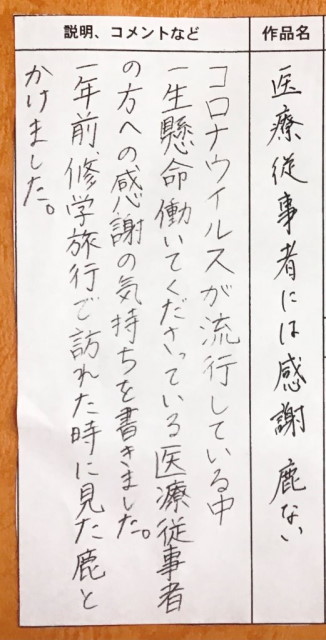 作品名
医療従事者には感謝 鹿ない
説明、コメントなど
コロナウイルスが流行している中
一生懸命働いてくださっている医療従事者
の方への感謝の気持ちを書きました。
一年前、修学旅行で訪れた時に見た鹿と
かけました。